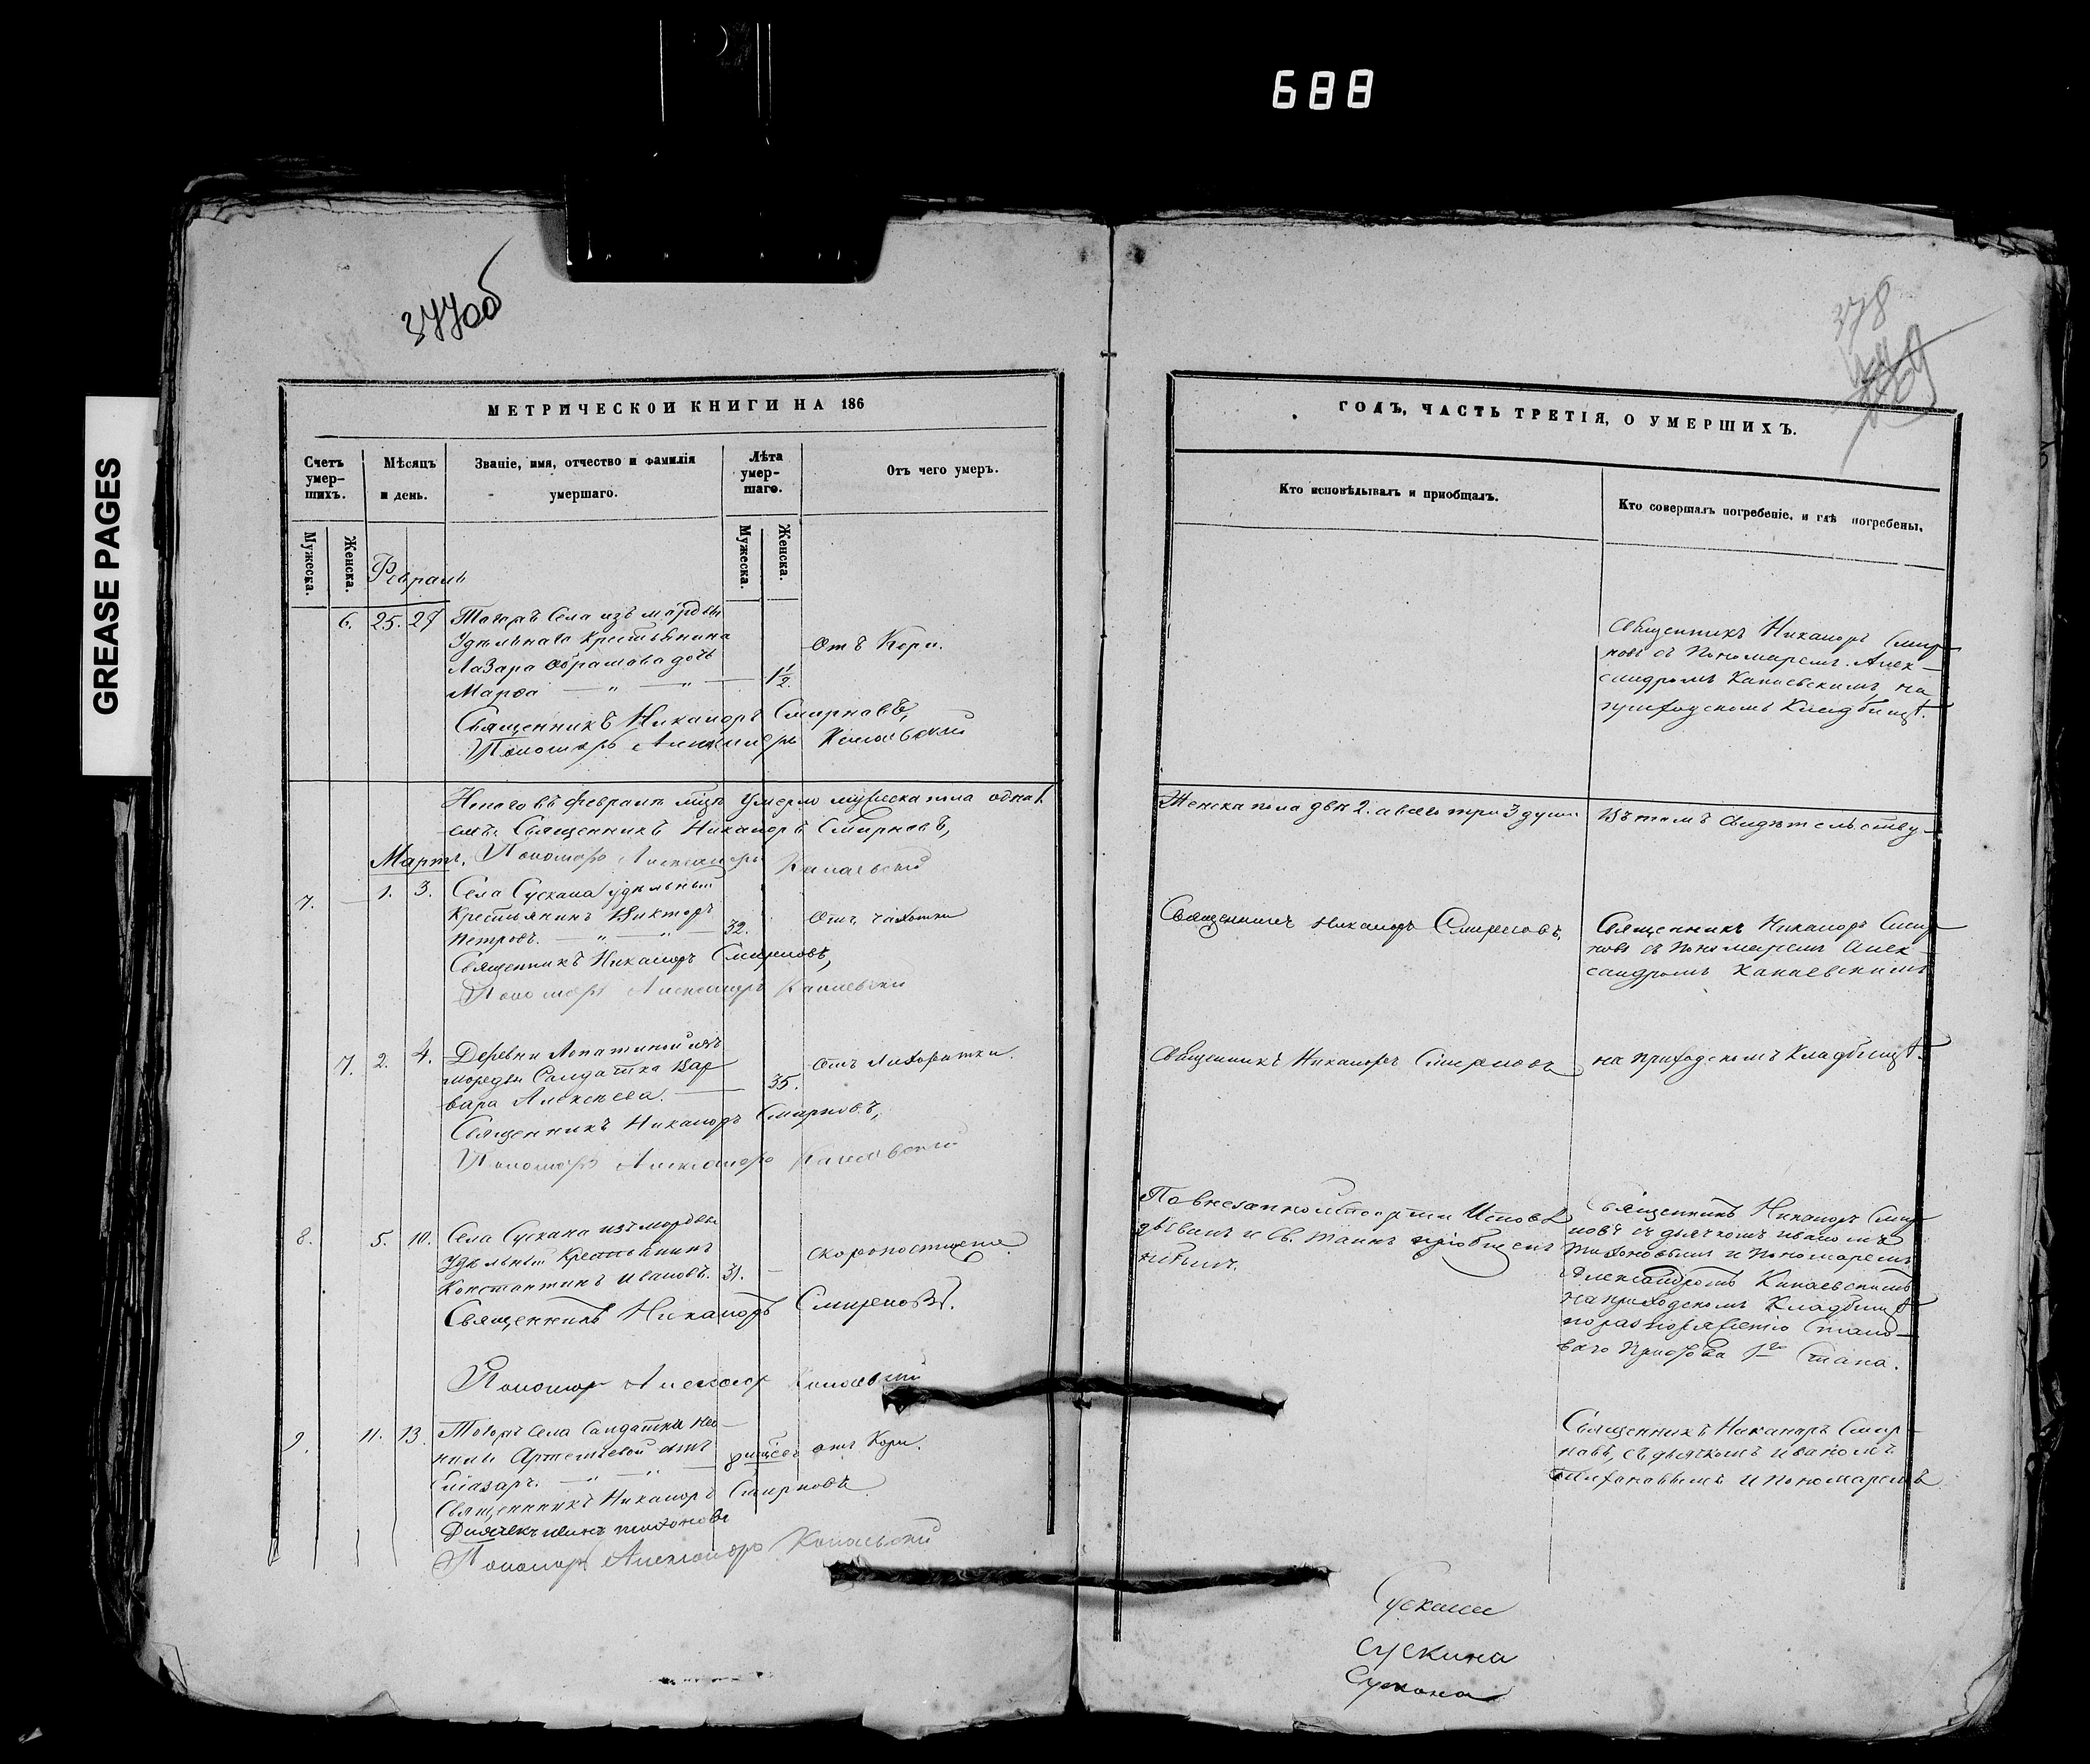 688
GREASE PAGES
377об
378
МЕТРИЧЕСКОЙ КНИГИ НА 186
Счетъ умер-
шихъ.
Мѣсяцъ
и день.
Званіе, имя, отчество и фамилія
умершаго.
Лѣта
умер-
шаго.
Отъ чего умеръ.
Мужеска.
Женска.
Мужеска.
Женска.
Февраль
6. 25. 27
Тогожъ Села изъ мордвы
Удѣльнаго Крестьянина
Лазара Обрамова дочь
Марѳа — „ — „ —
1/2.
Отъ Кори.
Священникъ Никаноръ Смирновъ,
Пономарь Александръ Канаевскій
Итого въ февралѣ мцѣ умерло мужеска пола одна 1.
Священникъ Никаноръ Смирновъ,
Мартъ.
Пономарь Александръ Канаевскій
7. — 1. 3.
Села Сускана удѣльный
Крестьянинъ Викторъ
Петровъ. — „ — „ — 32.
Отъ чахотки
Священникъ Никаноръ Смирновъ,
Пономарь Александръ Канаевскій
7. 2. 4.
Деревни Лопатиной изъ
мордвы Салдатка Вар
вара Алексѣева. —
35.
Отъ лихоратки.
Священникъ Никаноръ Смирновъ,
Пономарь Александръ Канаевскій
8. 5. 10.
Села Сускана изъ мордвы
Удѣльный Крестьянинъ
Константинъ Ивановъ. 31. —
скоропостижно.
Священникъ Никаноръ Смирновъ.
Пономарь Александръ Канаевскій
9. 11. 13.
Тогожъ Села Салдатки
Артемьевой сынъ
— „ — „ —
отъ Кори.
Священникъ Никаноръ Смирновъ.
Дьячекъ Иванъ Тихоновъ
Пономарь Александръ Канаевскій
ГОДЪ, ЧАСТЬ ТРЕТІЯ, О УМЕРШИХЪ.
Кто исповѣдывалъ и пріобщалъ.
Кто совершалъ погребеніе, и гдѣ погребены,
Священникъ Никаноръ Смир
новъ съ Пономаремъ Алек-
сандромъ Канаевскимъ, на
приходскомъ Кладбищѣ.
Женска пола двѣ 2. а всего три 3 души
Въ томъ Свидѣтельству-
Священникъ Никаноръ Смирновъ,
Священникъ Никаноръ Смир
новъ съ Пономаремъ Алек-
сандромъ Канаевскимъ
Священникъ Никаноръ Смирновъ
на приходскомъ Кладбищѣ.
По внезапной смерти Исповѣ
дыванъ и Св. Таинъ пріобщенъ
небылъ.
Священникъ Никаноръ Смир
новъ съ дьячкомъ Иваномъ
Тихоновымъ и Пономаремъ
Александромъ Канаевскимъ
на приходскомъ Кладбищѣ
по распоряженію Стано-
ваго Пристава 1го Стана.
Священникъ Никаноръ Смир-
новъ, съ дьячкомъ Иваномъ
Тихоновымъ и Пономаремъ
Сускана
Сускана
Сускана